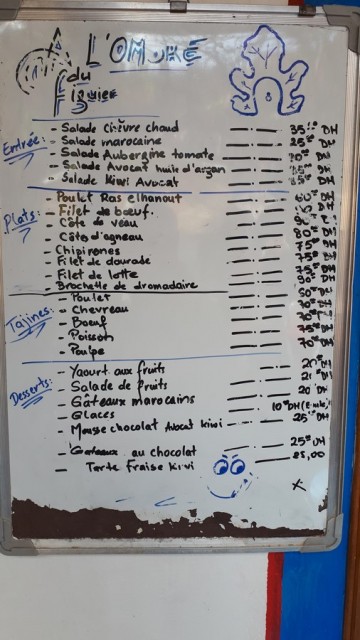 L'OMBRE
du
Figuier
Entrée:
- Salade Chèvre chaud 35 DH
- Salade marocaine 25 DH
- Salade Aubergine tomate DH
- Salade Avocat huile d'argan DH
- Salade Kiwi Avocat DH
Plats:
- Poulet Ras elhanout DH
- Filet de bœuf. DH
- Côte de veau DH
- Côte d'agneau 80 DH
- Chipirones 75 DH
- Filet de daurade 75 DH
- Filet de lotte DH
- Brochette de dromadaire 90 DH
Tajines:
- Poulet DH
- Chevreau 70 DH
- Boeuf DH
- Poisson 75 DH
- Poulpe 70 DH
Desserts:
- Yaourt aux fruits 20 DH
- Salade de fruits DH
- Gâteaux marocains 20 DH
- Glaces 10 DH
- Mousse chocolat Avocat kiwi 25 DH
- Gateaux au chocolat 25 DH
- Tarte fraise Kiwi 25,00
x